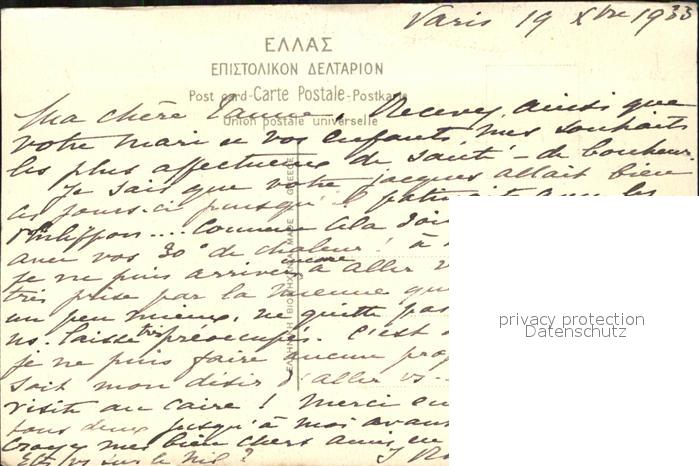 Paris 19 Xbre 1933
ΕΛΛΑΣ
ΕΠΙΣΤΟΛΙΚΟΝ ΔΕΛΤΑΡΙΟΝ
Post card-Carte Postale-Postkarte
Union postale universelle
Ma chère, Recevez ainsi que
votre mari et vos enfants mes souhaits
les plus affectueux de santé - de bonheur
Je sais que votre Jacques allait bien
ces jours-ci puisqu'il les
Philippon... Comme cela doit
avec vos 30° de chaleur! à
je ne puis arriver encore à aller
très prise par la mienne qui
un peu mieux, ne quitte pas
ns. laisse très préoccupés. C'est
je ne puis faire aucun pro
soit mon désir d'aller vs...
visite au Caire! Merci en
tous deux jusqu'à moi avant
Croyez mes bien chers amis, en
Etes vs sur le Nil?
GREECE
privacy protection
Datenschutz